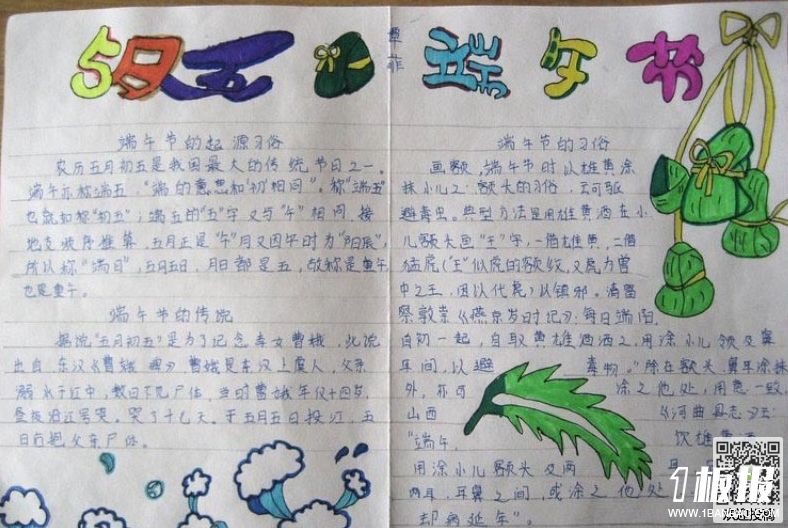 5月五 端午节
章菲
端午节的起源习俗
农历五月初五是我国最大的传统节日之一。
端午亦称端五，"端的意思和"初"相同"。称"端五"
也就如称"初五"；端五的"五"字又与"午"相同，按
地支顺序推算，五月正是"午"月又因午时为"阳辰"，
所以称"端日"，五月五日，月日都是五，故称是重午
也是重午。
端午节的传统
据说"五月初五"是为了纪念孝女曹娥，此说
出自东汉《曹娥碑》曹娥是东汉上虞人，父亲
溺水于江中，数日不见尸体，当时曹娥年仅十四岁，
昼夜沿江号哭。哭了十七天。于五月五日投江，五
日后抱父亲尸体。
端午节的习俗
画额，端午节时以雄黄涂
抹小儿之额头的习俗，云可驱
避毒虫。典型方法是用雄黄酒在小
儿额头画"王"字，一借雄黄，二借
猛虎（"王"似虎的额纹，又虎为兽
中之王，因以代虎）以镇邪。清富
察敦崇《燕京岁时记》：每日端阳，
自初一起，自取黄雄面洒之，用涂小儿领及鼻
耳间，以避 毒物。"除在额头、鼻耳涂抹
外，亦可 涂之他处，用意一致。
山西 《河曲县志》云：
"端午， 饮雄黄酒
用涂小儿额头 及两
两耳，耳鼻之间，或涂之他处
却病延年"。
1板报
WWW.1BANBAO.COM